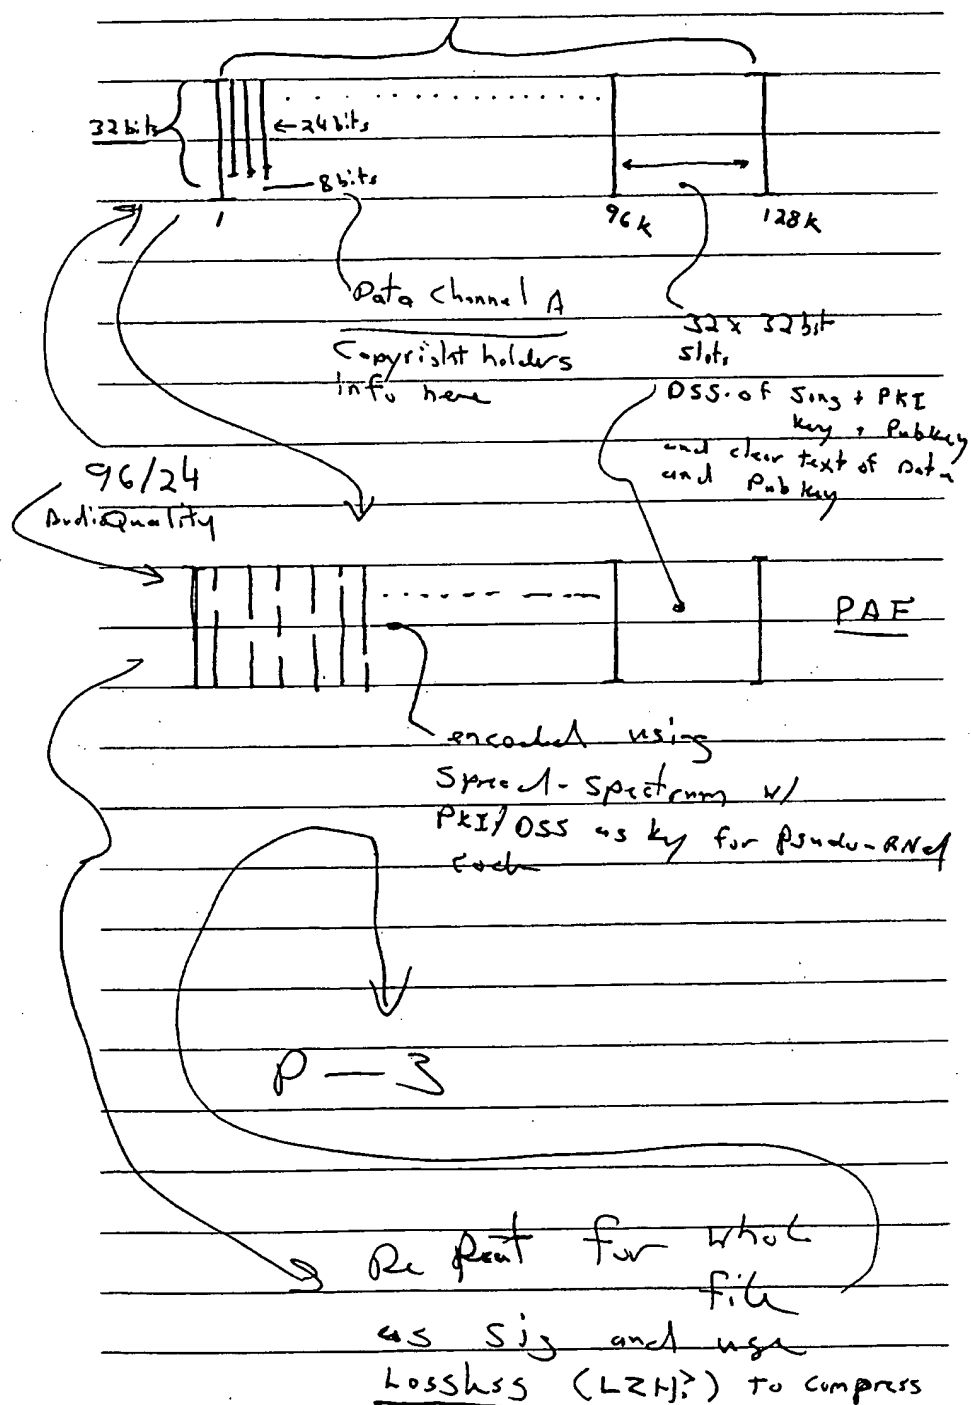 32 bits
← 24 bits
8 bits
1
96k
128k
Data Channel A
Copyright holders
info here
32 x 32 bit
slots
DSS of Song + PKI
key + Pubkey
and clear text of Data
and Pub key
96/24
AudioQuality
PAF
encoded using
Spread-Spectrum w/
PKI/DSS as ky for Psudo-RNd
code
P — 3
Repeat for whole
file
as sig and use
Lossless (LZH?) to compress